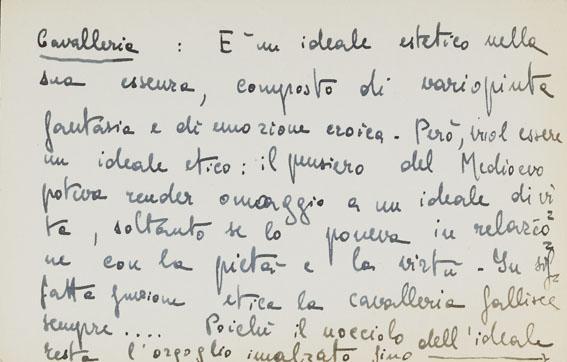 Cavalleria : E' un ideale estetico nella
sua essenza, composto di variopinta
fantasia e di emozione eroica. Però, vuol essere
un ideale etico: il pensiero del Medioevo
poteva render omaggio a un ideale di vi
ta, soltanto se lo poneva in relazio
ne con la pietà e la virtù. In sif
fatta funzione etica la cavalleria fallisce
sempre .... Poichè il nocciolo dell'ideale
resta l'orgoglio innalzato fino